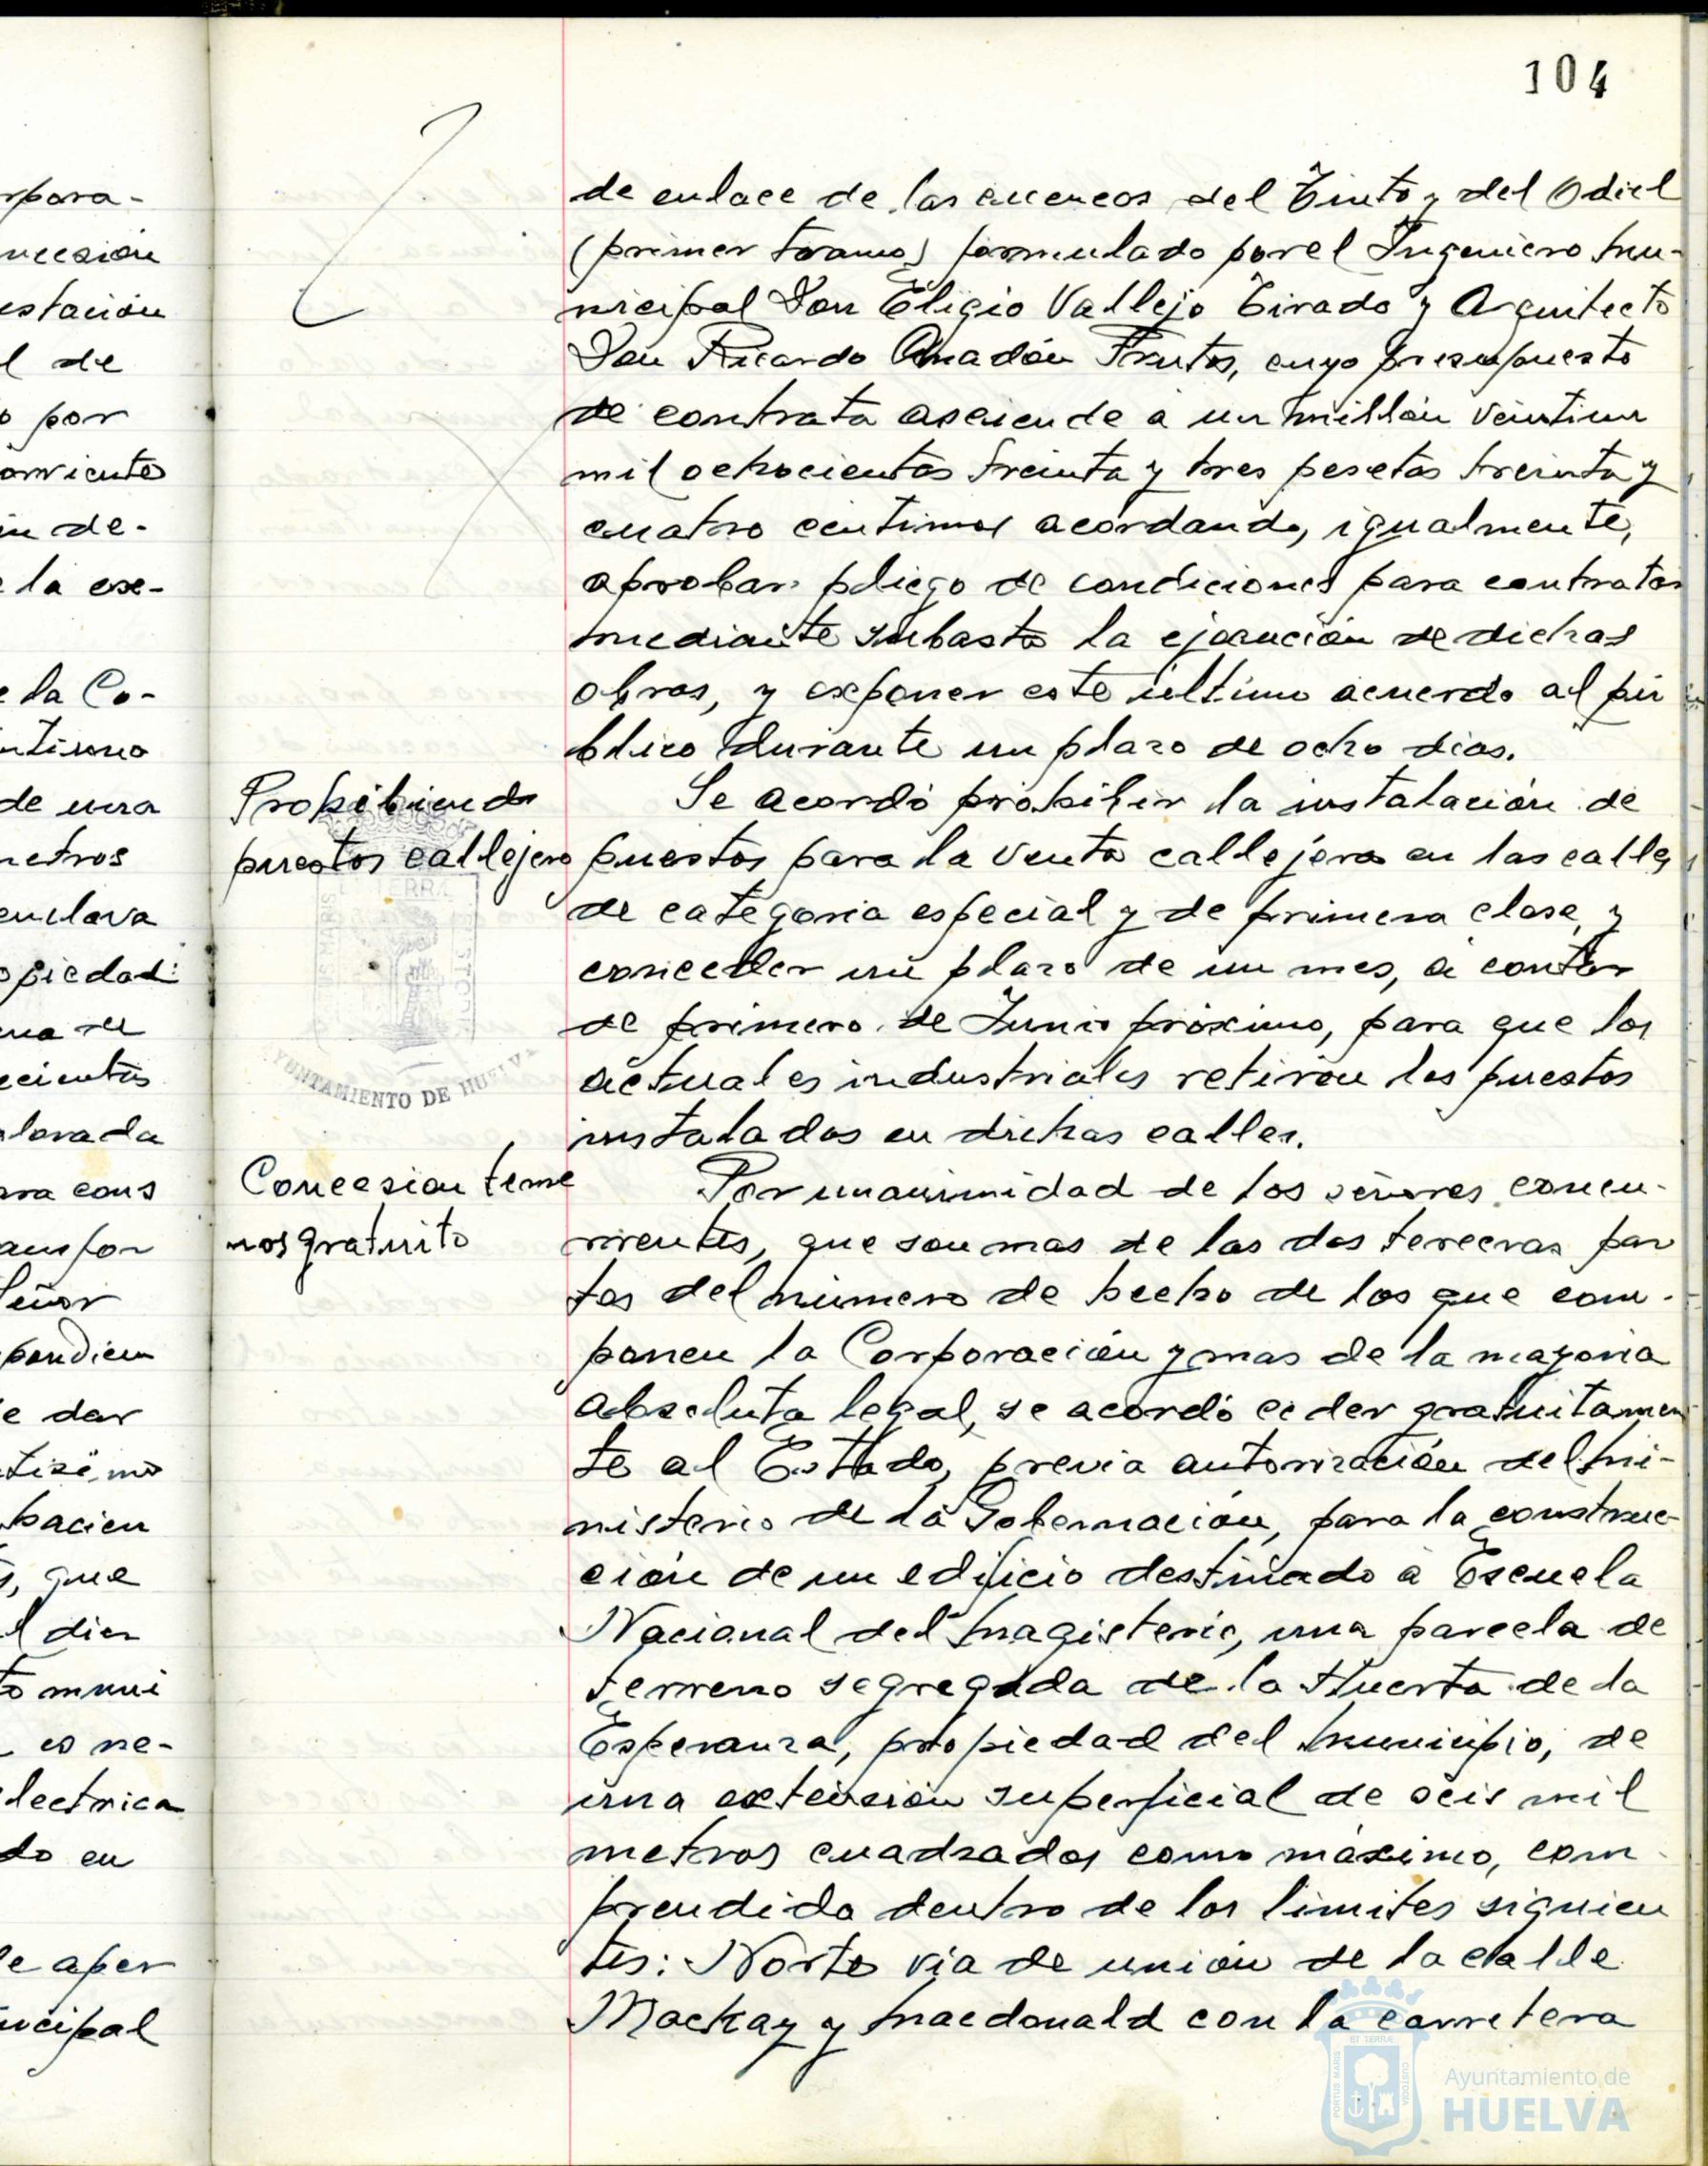 104
rpora-
ucesión
estación
l de
o por
onviente
in de-
e la exe-
e la Co-
ntisono
de una
netros
enclava
opiedad:
una de
ecientos
lorada
ara cons
ampor
Señor
pondien
e dar
tisimo
hacien
s, que
l dien
to muni
es ne-
lectrica
do en
le aper
nicipal
de enlace de las cuencas del Tinto y del Odiel
(primer tramo) formulado por el Ingeniero Mu-
nicipal Don Eligio Vallejo Tirado y Arquitecto
Don Ricardo Anadón Frutos, cuyo presupuesto
de contrata asciende a un millón veintiun
mil ochocientas treinta y tres pesetas treinta y
cuatro centimos acordando, igualmente,
aprobar pliego de condiciones para contratar
mediante subasta la ejecución de dichas
obras, y exponer este último acuerdo al pú
blico durante un plazo de ocho dias.
Prohibiendo
puestos callejero
Se acordó prohibir la instalación de
puestos para la venta callejera en las calles
de categoria especial y de primera clase, y
conceder un plazo de un mes, a contar
de primero de Junio próximo, para que los
actuales industriales retiren los puestos
instalados en dichas calles.
ET TERRA
AYUNTAMIENTO DE HUELVA
Concesion terre
nos gratuito
Por unanimidad de los señores concu-
rrentes, que son mas de las dos terceras par
tes del número de hecho de los que com-
ponen la Corporación y mas de la mayoria
absoluta legal, se acordó ceder gratuitamen
te al Estado, previa autorización del Mi-
nisterio de la Gobernación, para la construc-
ción de un edificio destinado a Escuela
Nacional del Magisterio, una parcela de
terreno segregada de la Huerta de la
Esperanza, propiedad del Municipio, de
una extensión superficial de seis mil
metros cuadrados como máximo, com-
prendida dentro de los limites siguien
tes: Norte via de unión de la calle
Mackay y Macdonald con la carretera
PORTUS MARIS
ET TERRÆ
CUSTODIA
Ayuntamiento de
HUELVA